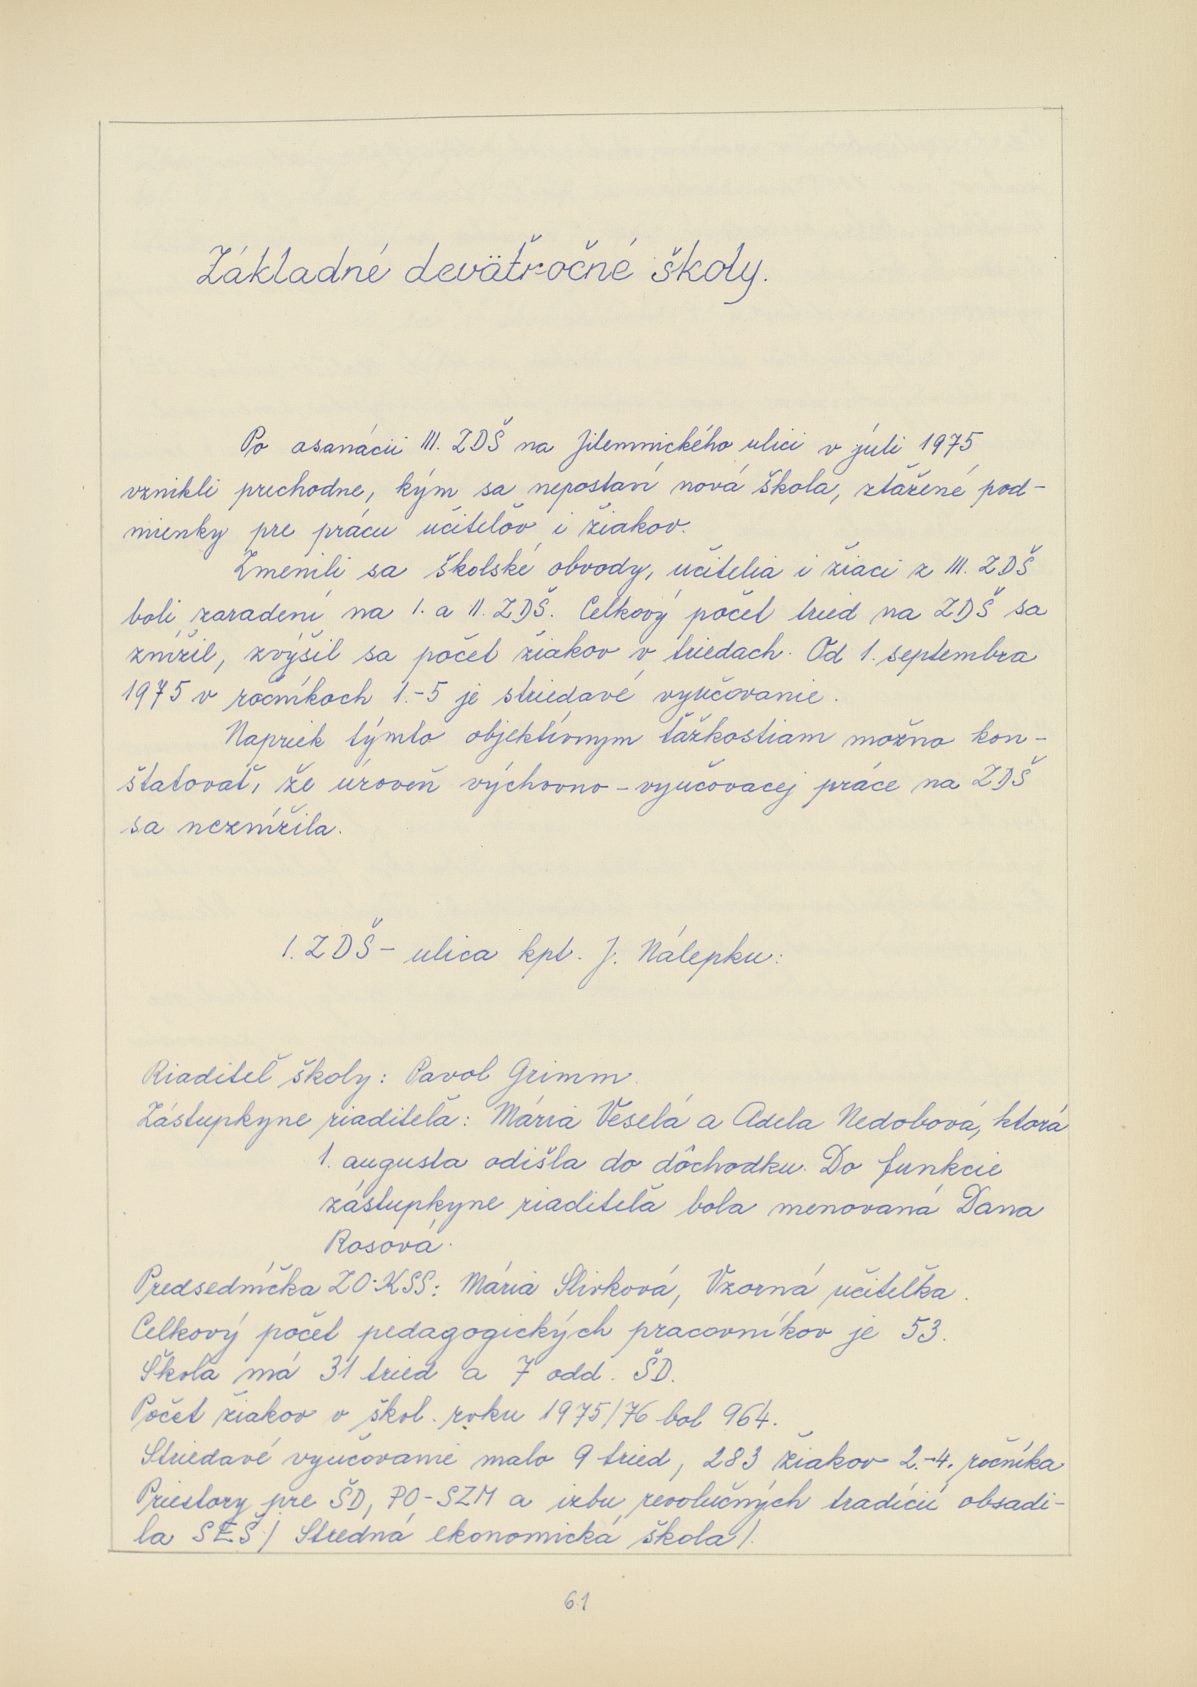 Základné deväťročné školy.
Po asanácii III. ZDŠ na Jilemnického ulici v júli 1975
vznikli prechodne, kým sa nepostaví nová škola, sťažené pod-
mienky pre prácu učiteľov i žiakov.
Zmenili sa školské obvody, učitelia i žiaci z III. ZDŠ
boli zaradení na I. a II. ZDŠ. Celkový počet tried na ZDŠ sa
znížil, zvýšil sa počet žiakov v triedach. Od 1. septembra
1975 v ročníkoch 1.-5 je striedavé vyučovanie.
Napriek týmto objektívnym ťažkostiam možno kon-
štatovať, že úroveň výchovno-vyučovacej práce na ZDŠ
sa neznížila.
I. ZDŠ - ulica kpt. J. Nálepku:
Riaditeľ školy: Pavol Grimm.
Zástupkyne riaditeľa: Mária Veselá a Adela Nedobová, ktorá
1. augusta odišla do dôchodku. Do funkcie
zástupkyne riaditeľa bola menovaná Dana
Rosová.
Predsedníčka ZO-KSS: Mária Slivková, Vzorná učiteľka.
Celkový počet pedagogických pracovníkov je 53.
Škola má 31 tried a 7 odd. ŠD.
Počet žiakov v škol. roku 1975/76 bol 964.
Striedavé vyučovanie malo 9 tried, 283 žiakov 2.-4. ročníka
Priestory pre ŠD, PO-SZM a izbu revolučných tradícií obsadi-
la SEŠ / Stredná ekonomická škola /.
61